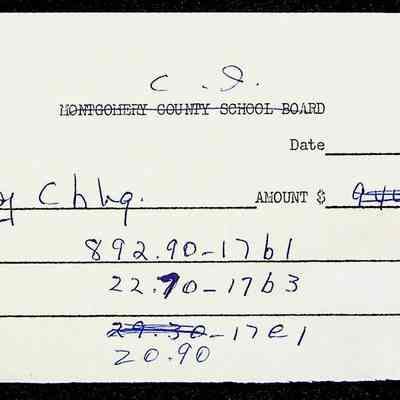 C. I.
MONTGOMERY COUNTY SCHOOL BOARD
Date
AMOUNT $
892.90-17b1
22.70-17b3
29.30-17e1
20.90